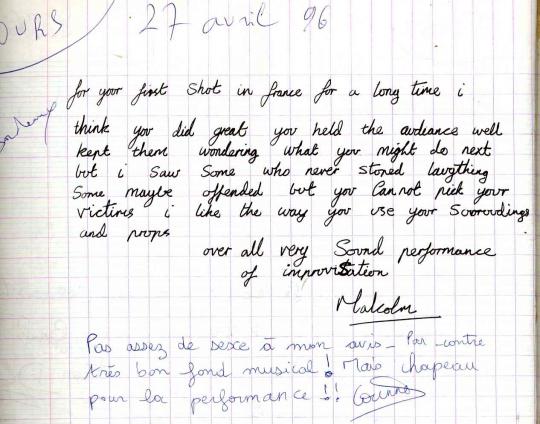 OURS
27 avril 96
for your first shot in france for a long time i
think you did great you held the audeance well
kept them wondering what you might do next
but i saw some who never stoned laugthing
Some maybe offended but you Can not pick your
victims i like the way you use your Sooroudings
and props
over all very Sound performance
of improviSation
Malcolm
Pas assez de sexe à mon avis _ Par contre
très bon fond musical ! Mais chapeau
pour la performance !!